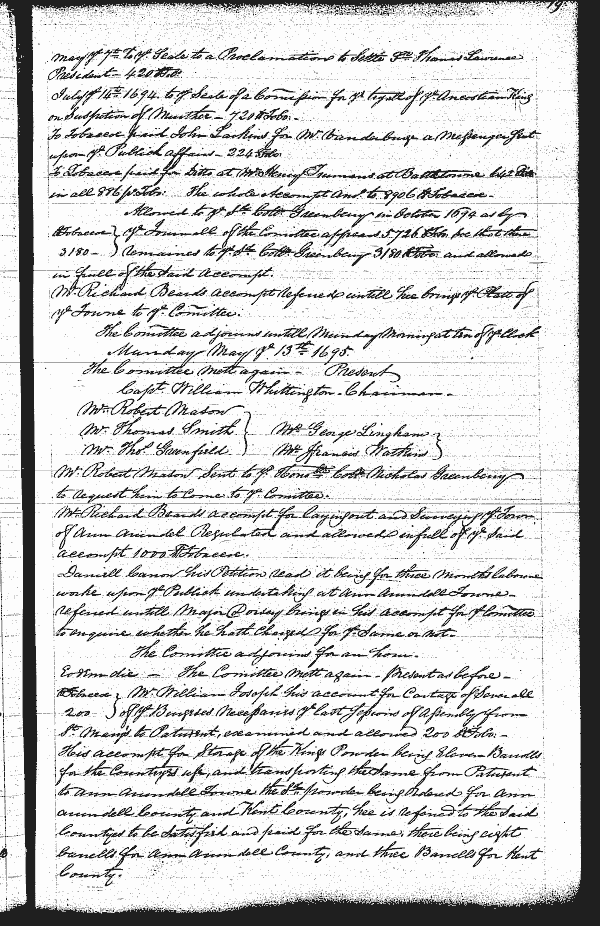 19
may yᵉ 7th to yᵉ Seale to a Proclamation to Settle Sr Thomas Lawrence
President - 420 lb Tob.
July yᵉ 14th 1694. to yᵉ Seale of a Comission for yᵉ tryall of yᵉ Anacostian King
on Suspition of Murther - 720 lb Tobo.
To Tobacco paid John Larkens for Mr Vanderburge a Messenger Sent
upon yᵉ Publick affairs - 224 lb Tobo
To Tobacco paid for ditto at Mr Henry at Battletowne 642 lb
in all 886 p Tobo. The whole accompt amo. to 8906 lb Tobacco.
Allowed to yᵉ Sd Collo Greenbery in October 1694 as by
Tobacco } yᵉ Journall of the Comittee appears 5726 lb Tobo. Soe that there
3180 - } remaines to yᵉ Sd Collo Greenbery 3180 lb Tobo and allowed
in full of the Said accompt.
Mr Richard Beards accompt referred untill hee brings yᵉ Platt of
yᵉ Towne to yᵉ Comittee.
The Comittee adjorns untill Munday Morning at ten of yᵉ Clock
Munday May yᵉ 13th 1695.
The Comittee mett again - Present
Capt William Whittington. Chairman.
Mr Robert Mason
Mr Thomas Smith } Mr George Lingham }
Mr Tho: Greenfield } Mr ffrancis Watkins }
Mr Robert Mason Sent to yᵉ Honoble Collo Nicholas Greenberry
to request him to Come to yᵉ Comittee.
Mr Richard Beards accompt for laying out and Surveying yᵉ Town
of Ann Arundel Regulated and allowed in full of yᵉ Said
accompt 1000 lb Tobacco.
Daniell Canon his Petition read it being for three Months labour
worke upon yᵉ Publick undertaking at Ann Arundell Towne
referred untill Major Dorsey brings in his accompt for yᵉ Comittee
to enquire whether he hath Charged for yᵉ Same or not.
The Comittee adjourns for an hour.
Eodem die - The Comittee mett again - Present as before -
Tobacco } Mr William Joseph his account for Cartage of Severall
200 } of yᵉ Burgeses Necessaries yᵉ last Sessions of Assembly from
St Maryes to Patuxent, examined and allowed 200 lb Tobo.
His accompt for Storage of the Kings Powder being Eleven Barrells
for the Countyes use, and transporting the Same from Patuxent
to Ann Arundell Towne the Sd powder being Ordered for Ann
arundell County and Kent County, hee is referred to the Said
Countyes to be Satisfied and paid for the Same, there being eight
barrells for Ann Arundell County, and three Barrells for Kent
County.